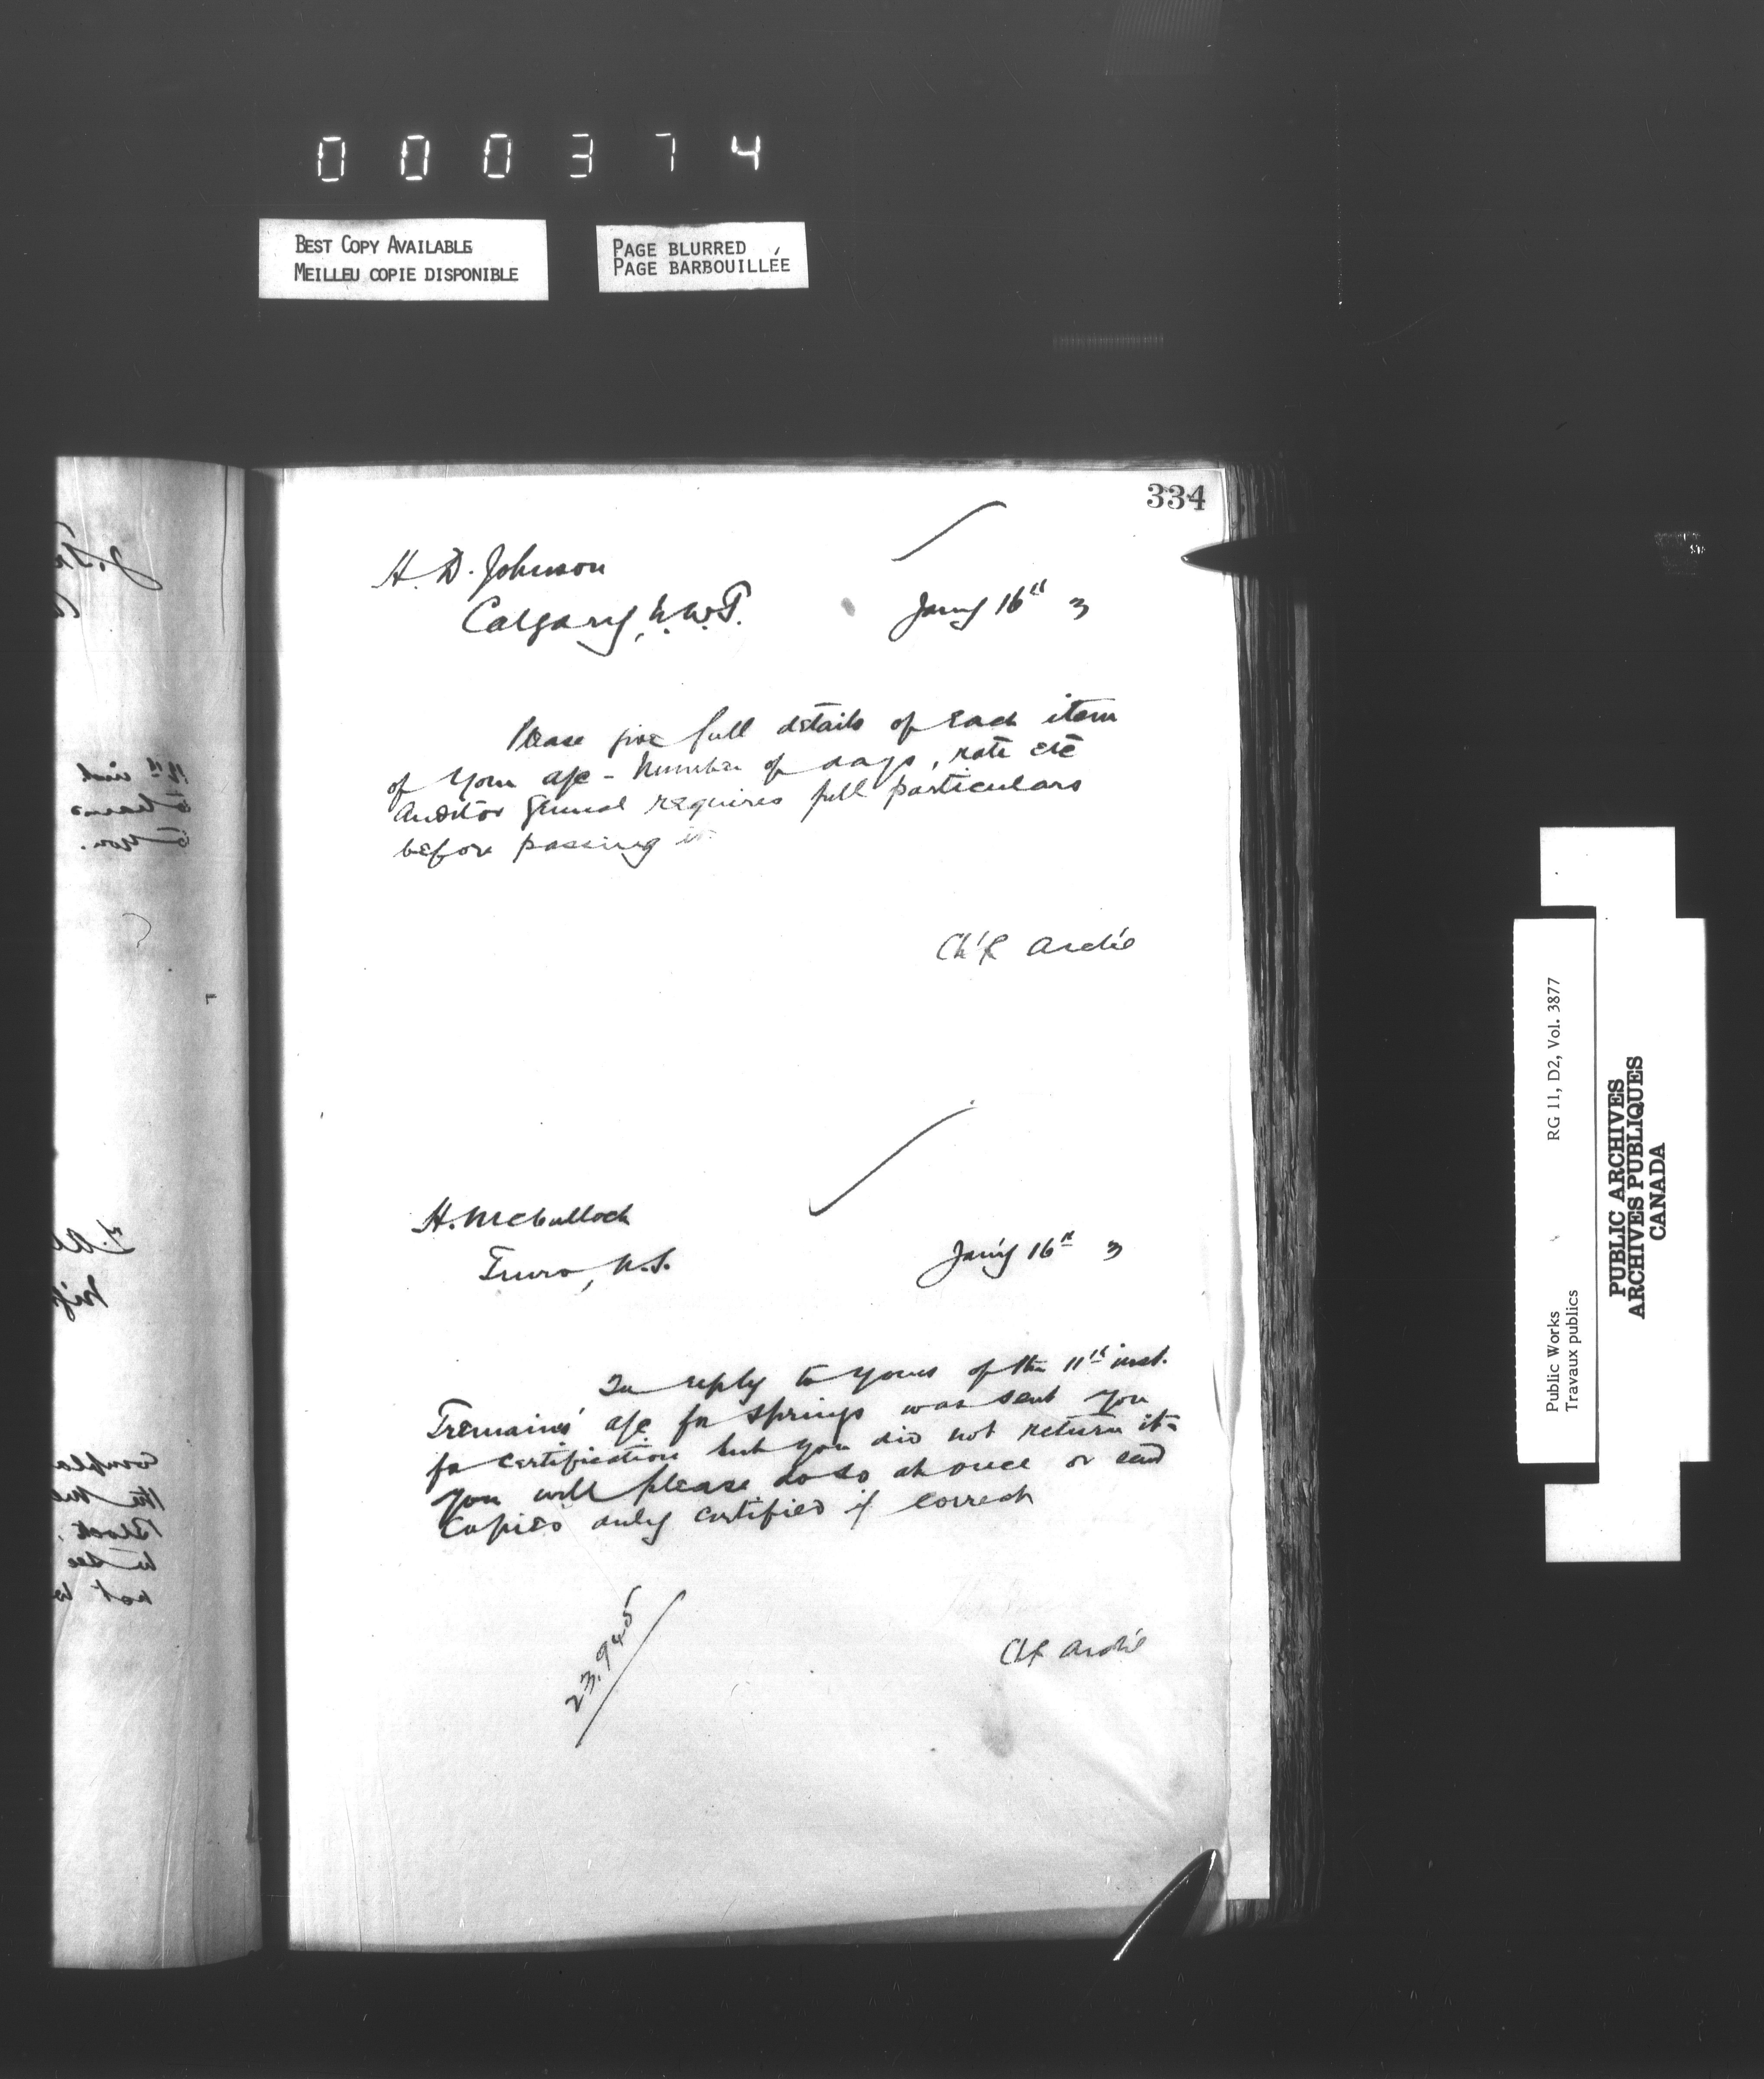 000374
BEST COPY AVAILABLE
MEILLEU COPIE DISPONIBLE
PAGE BLURRED
PAGE BARBOUILLÉE
334
H. D. Johnson
Calgary, N.W.T.
Jany 16th 3
Please give full details of each item
of your a/c - Number of days, rate etc
Auditor General requires full particulars
before passing it
Ch'f Archt
H. McCulloch
Truro, N.S.
Jan'y 16th 3
In reply to yours of the 11th inst.
Tremaine's a/c for springs was sent you
for certification but you did not return it -
You will please do so at once or send
copies duly certified if correct
23,945
Chf Archt
Public Works
Travaux publics
RG 11, D2, Vol. 3877
PUBLIC ARCHIVES
ARCHIVES PUBLIQUES
CANADA